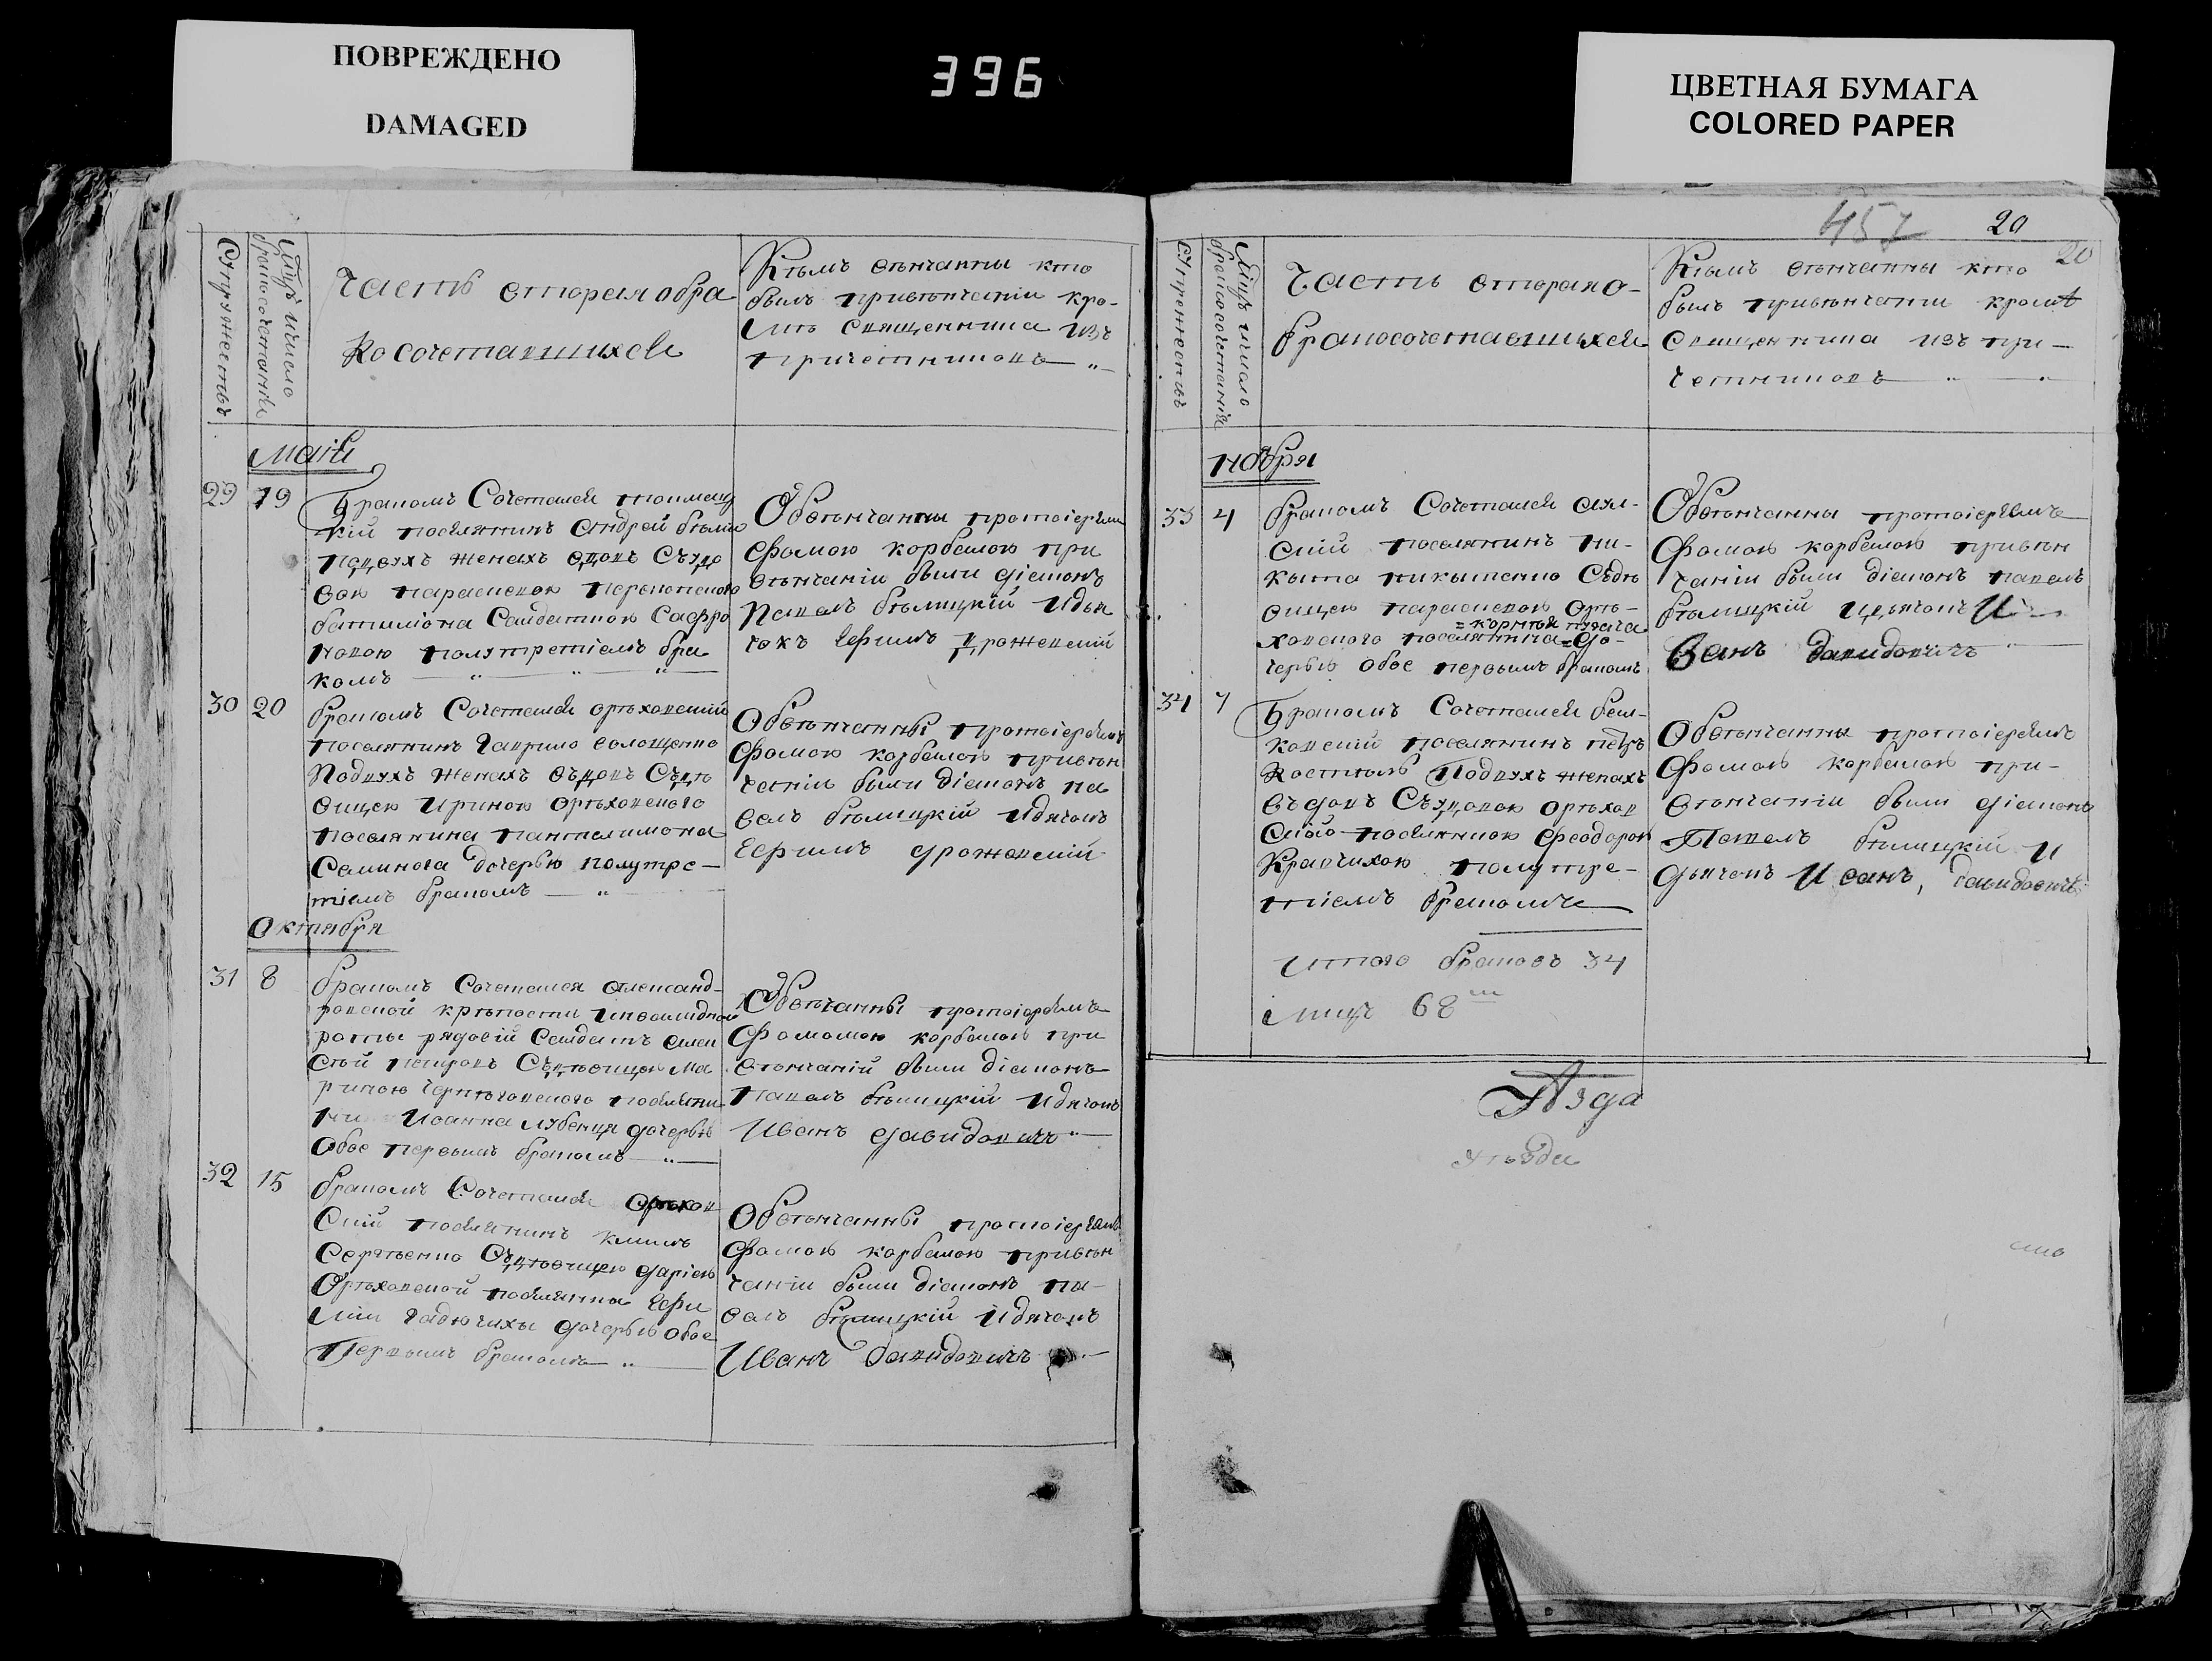 ПОВРЕЖДЕНО
DAMAGED
396
ЦВЕТНАЯ БУМАГА
COLORED PAPER
Супружествъ
Мцъ ичисло
бракосочетанія
Часть вторая обра
косочетавшихся
Кѣмъ вѣнчанны кто
былъ привѣнчаніи кро-
мѣ священника изъ
причетниковъ
Маія
29 19
Бракомъ Сочетался
кій поселянинъ Андрей
Подвухъ женахъ вдовъ Съудо
вою параскевою
баталіона Салдаткою Сафро
новою полутретіемъ бра
комъ
Обвѣнчанны протоіереемъ
Фомою корбеloю при
вѣнчаніи были діаконъ
Павелъ бѣлицкій Идья
чокъ Ефимъ дрожевскій
30 20
бракомъ Сочетался орѣховскій
поселянинъ Гаврило волощенко
Подвухъ женахъ въдовъ Съдѣ
вицею Ириною Орѣховского
поселянина пантелимона
Семинога дочерью полутре-
тіемъ бракомъ
Обвѣнчанны протоіереемъ
Фомою корбелою привѣн
чаніи были діаконъ па
велъ бѣлицкій Идячокъ
Ефимъ дрожевскій
Октября
31 8
бракомъ Сочетался Александ-
ровской крѣпости Инвалидной
роты рядовій Салдатъ Алек
сѣй петровъ Съдѣвицею Ма
риною Чернѣговского поселяни
на Иоанна лубенця дочерью
Обое первымъ бракомъ
Обвѣнчанны протоіереемъ
Фомомою корбелою при
вѣнчаній были діаконъ
павелъ бѣлицкій Идячокъ
Иванъ Давидовичъ
32 15
бракомъ Сочетался Орѣхов
Скій поселянинъ климъ
Сергѣенко Съдѣвицею Даріею
Орѣховской поселянки Ефи
міи Гадючихи Дочерью обое
Первымъ бракомъ
Обвѣнчанны протоіереемъ
Фомою корбелою привѣн
чаніи были діаконъ па-
велъ бѣлицкій Идячокъ
Иванъ Давидовичъ
457 20
20
Супружествъ
Мцъ ичисло
бракосочетанія
Часть вторая о-
бракосочетавшихся
Кѣмъ вѣнчанны кто
былъ привѣнчаніи кромѣ
Священника изъ при-
четниковъ
Ноября
33 4
бракомъ Сочетался
скій поселянинъ Ни-
кыта никытенко Съдѣ
вицею параскевою Орѣ-
=корнѣя пугача
ховского поселянина=До-
черью обое первымъ бракомъ
Обвѣнчанны протоіереемъ
Фомою корбелою привѣн
чаніи были діаконъ павелъ
бѣлицкій Идьячокъ И-
ванъ Давидовичъ
34 7
Бракомъ Сочетался бел-
ковскій поселянинъ петръ
Костюкъ Подвухъ женахъ
въдовъ Съудовою орѣхов
ского поселянкою Феодорою
Кравчихою полутре-
тіемъ бракомъ
Обвѣнчанны протоіереемъ
Фомою корбелою при-
вѣнчаніи были діаконъ
Павелъ бѣлицкій И
дьячокъ Иванъ, Давидовичъ
Итого браковъ 34
лицъ 68
уѣзда